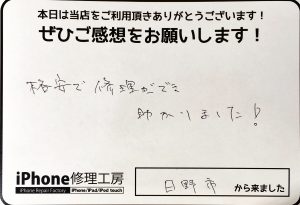 本日は当店をご利用頂きありがとうございます！
ぜひご感想をお願いします！
格安で修理ができ
助かりました！
iPhone修理工房
iPhone Repair Factory iPhone/iPad/iPod touch
日野市 から来ました